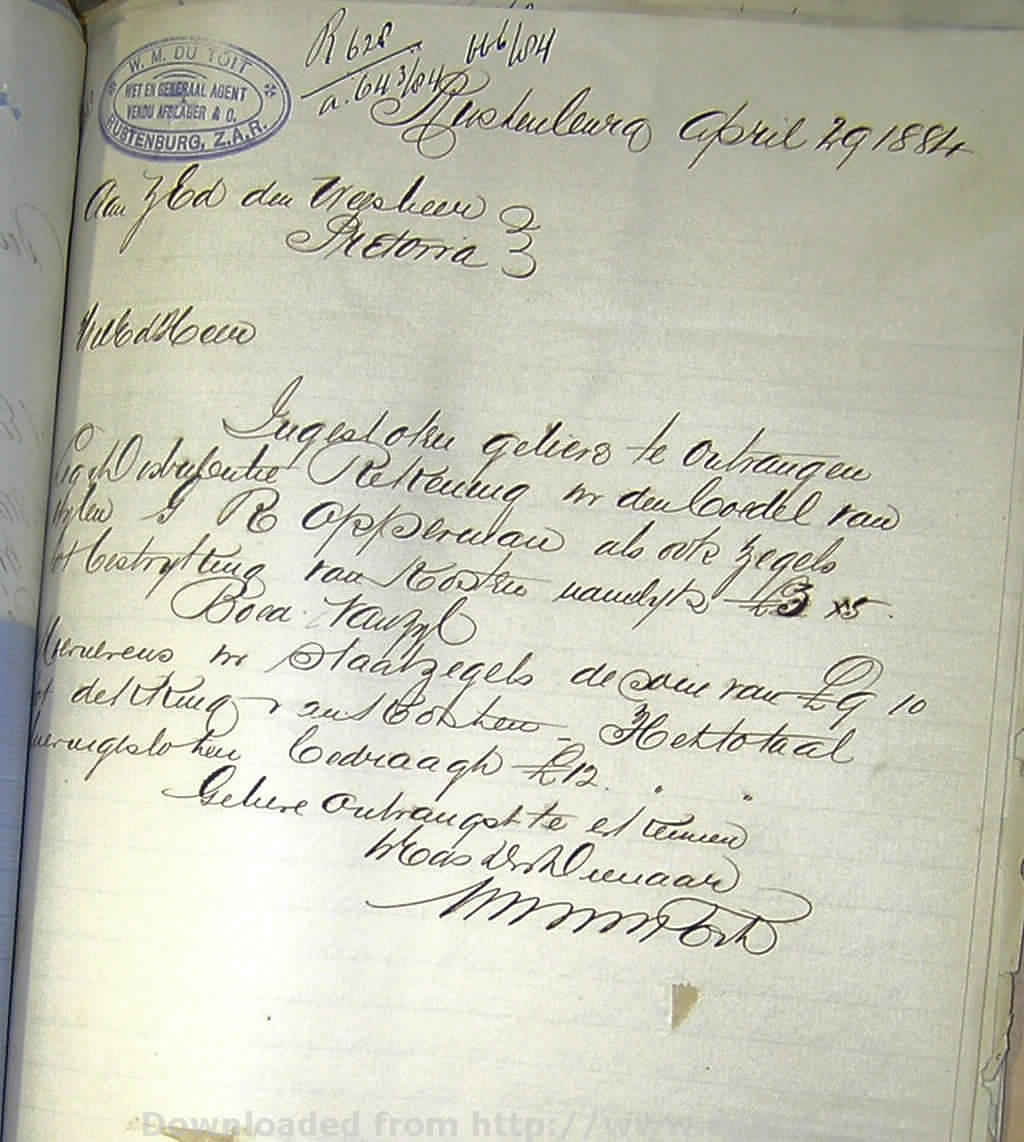 W. M. DU TOIT
WET EN GENERAAL AGENT
VENDU AFSLAGER & O.
RUSTENBURG, Z.A.R.
R 628
a. 643/84
Rustenburg April 29 1884
Aan ZEd den Weesheer
Pretoria
WelEdHeer
Ingesloten gelieve te ontvangen
Distributie Rekening in den boedel van
Wylen G R Opperman als ook zegels
tot bestryking van Kosten namelyk £3
Boed. Van Zyl
in Staatzegels de som van £9 10
dekking Het totaal
bedraagh £12 " "
Gelieve ontvangst te erkennen
Dienaar
Downloaded from http://www.